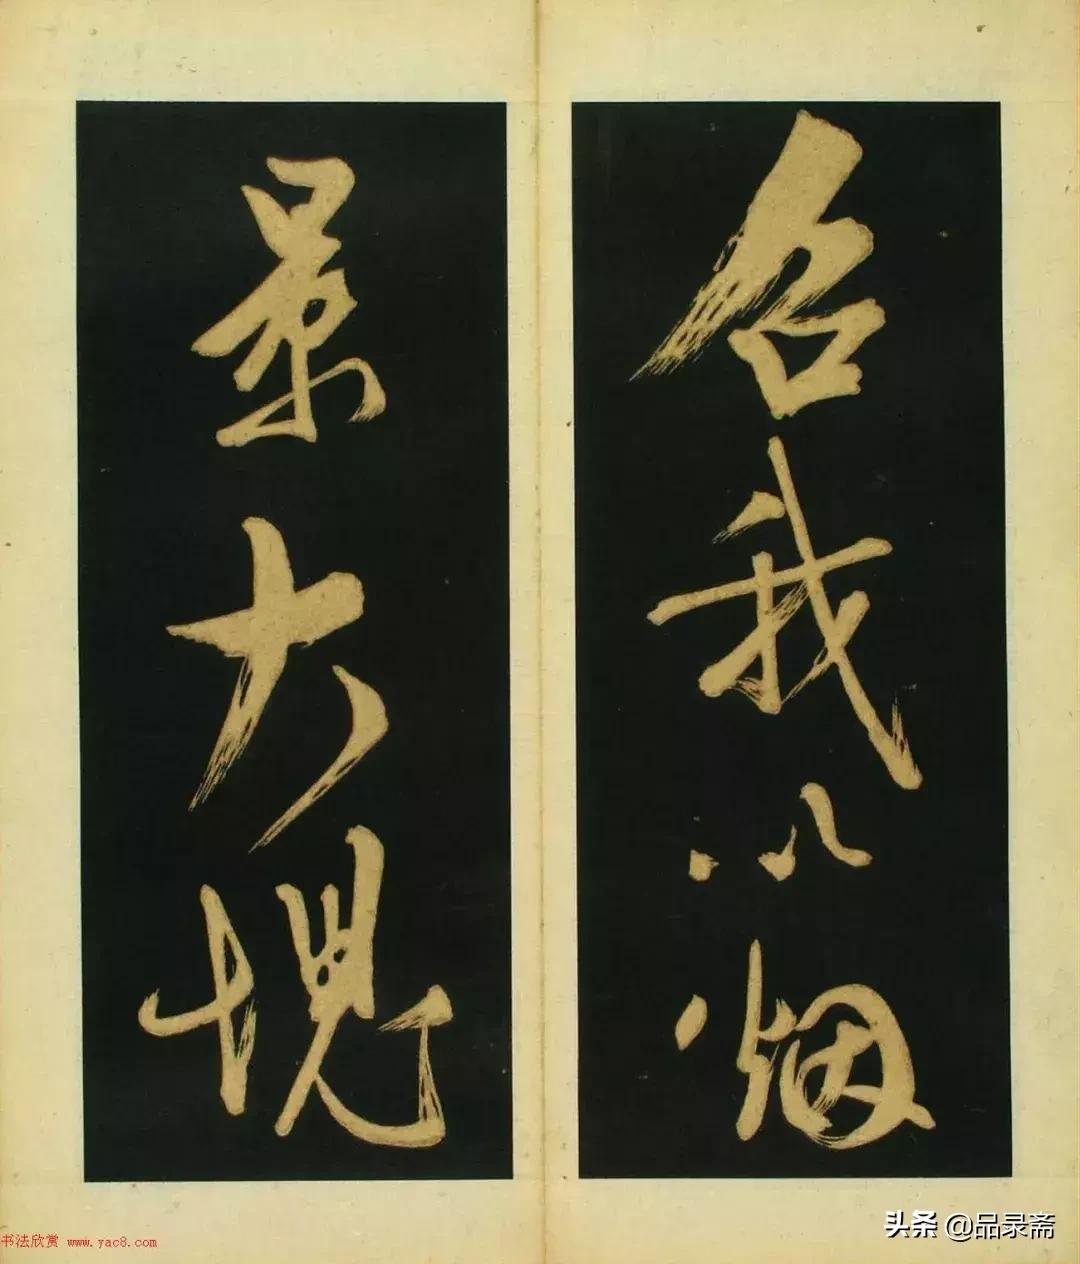 召我以烟
景大塊
书法欣赏 www.yac8.com
头条 @品录斋